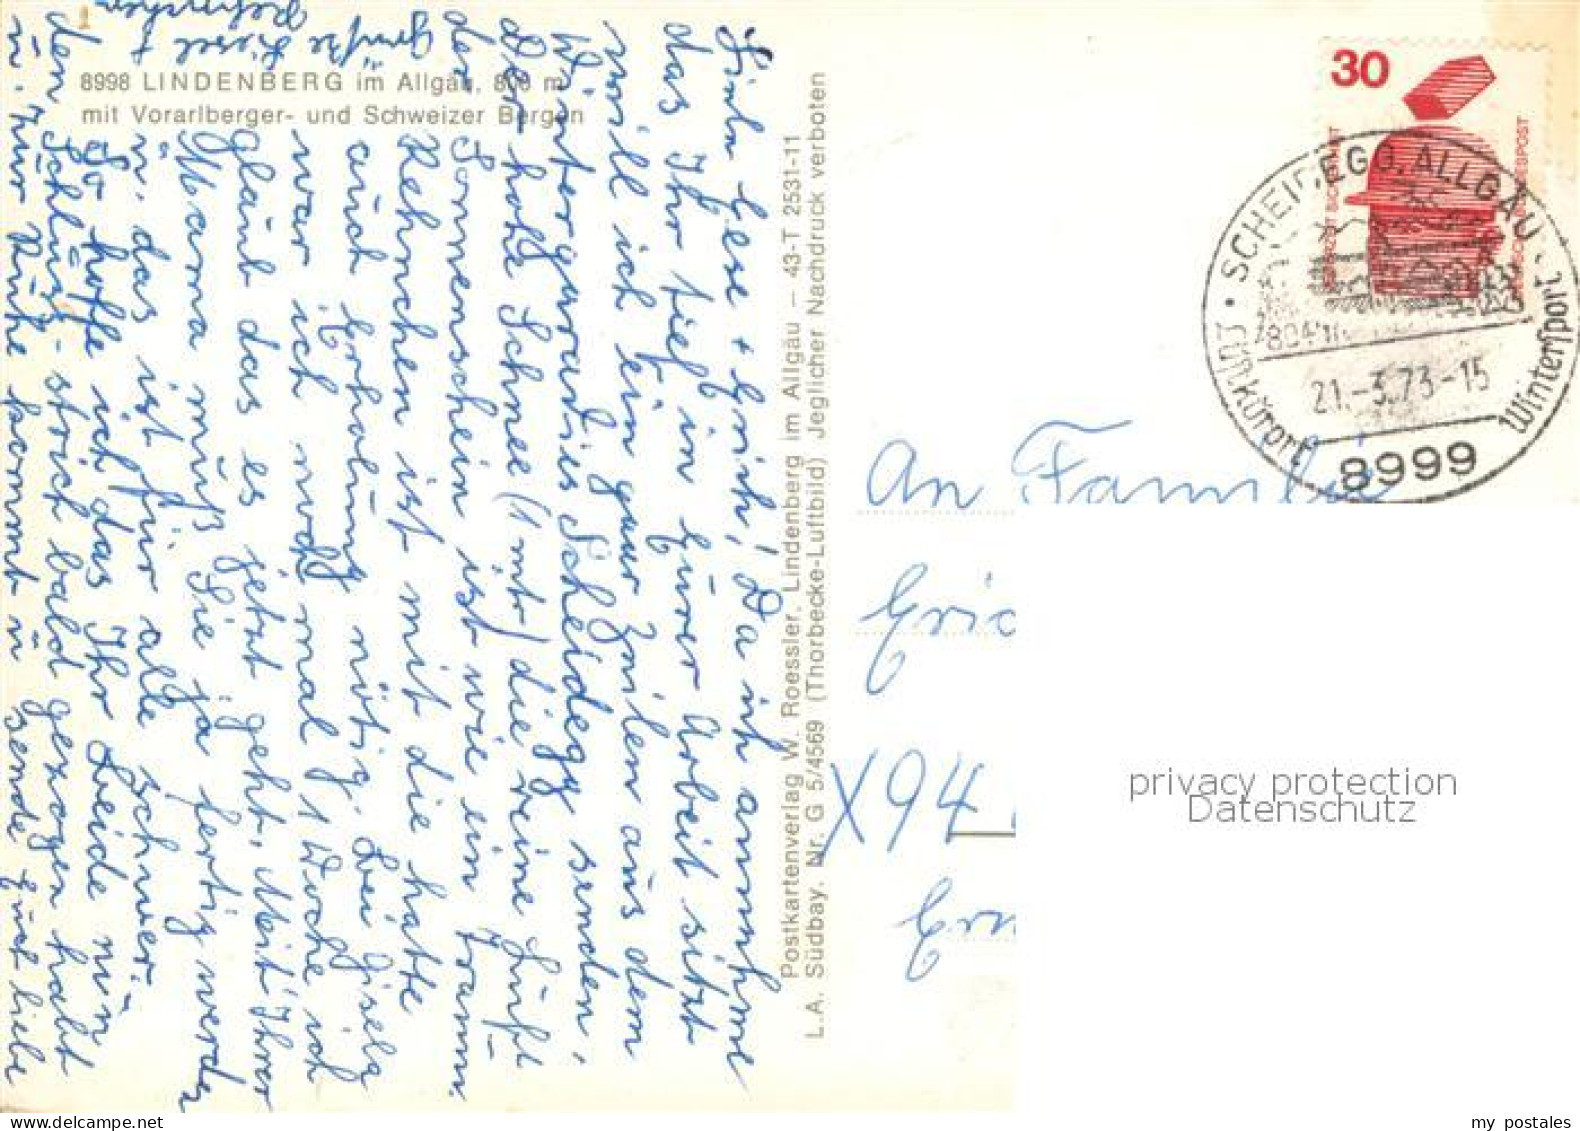 8998 LINDENBERG im Allgäu, 800 m
mit Vorarlberger- und Schweizer Bergen
Postkartenverlag W. Roessler, Lindenberg im Allgäu – 43-T 2531-11
L.A. Südbay. Nr. G 5/4569 (Thorbecke-Luftbild) Jeglicher Nachdruck verboten
Liebe Gese + Erich! Da ich annehme
das Ihr tief in Eurer Arbeit sitzt
will ich ein paar Zeilen aus dem
Winterparadies Scheidegg senden.
Der hohe Schnee (1 mtr) die reine Luft
der Sonnenschein ist wie ein Traum.
Rehnchen ist mit die hatte
auch Erholung nötig. Bei Gisela
war ich noch mal 1 Woche ich
glaub das es jetzt geht. Mit Ihrer
Mama muß Sie ja fertig werden
u. das ist für alle schwer.
So hoffe ich das Ihr Beide nun
den Schluß-strich bald gezogen habt
u. zur Ruhe kommt u sende Euch liebe
Grüße
Liesel +
Rehnchen
30
SCHEIDEGG, ALLGÄU
804 m
21.-3.73-15
Luftkurort
Wintersport
8999
An Familie
Eric
X94
Ern
privacy protection
Datenschutz
my postales